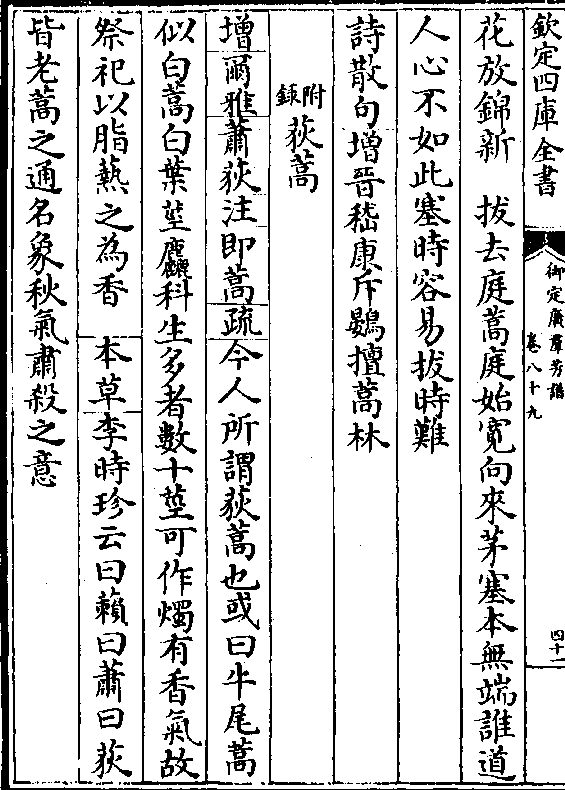 欽定四庫全書
御定廣羣芳譜
卷八十九
四十一
花放錦新　拔去庭蒿庭始寛向來茅塞本無端誰道
人心不如此塞時容易拔時難
詩散句增晉嵇康斥鷃擅蒿林
附錄荻蒿
增爾雅蕭荻注即蒿疏今人所謂荻蒿也或曰牛尾蒿
似白蒿白葉莖麤科生多者數十莖可作燭有香氣故
祭祀以脂爇之為香　本草李時珍云曰藾曰蕭曰荻
皆老蒿之通名象秋氣肅殺之意